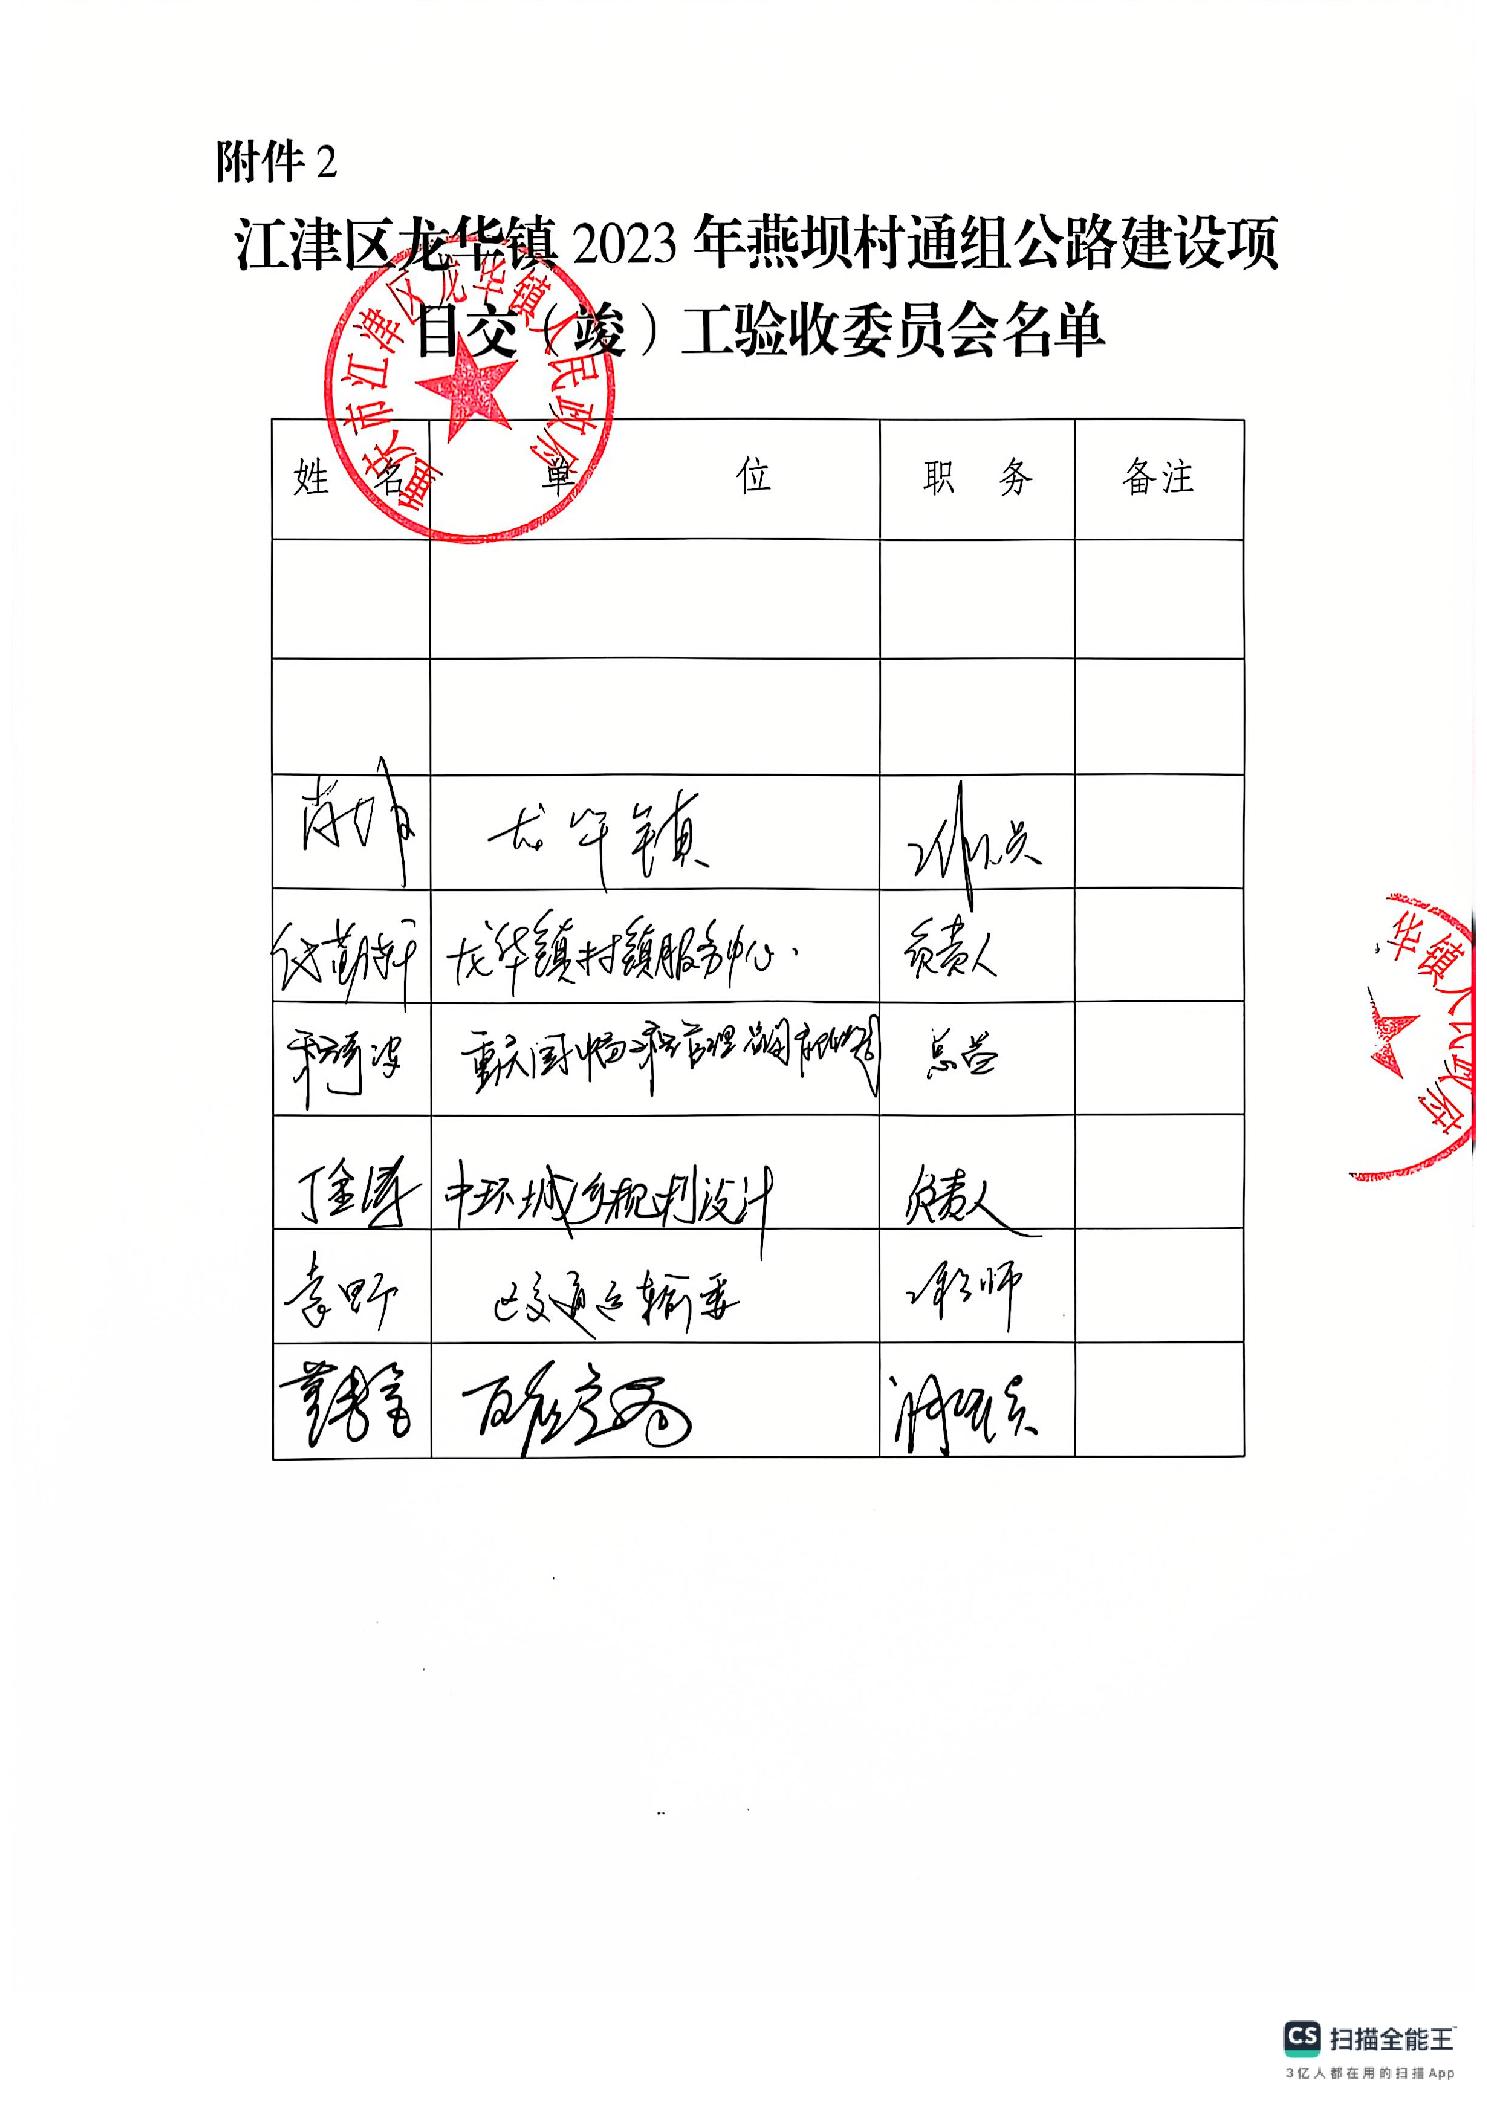 附件 2
江津区龙华镇 2023 年燕坝村通组公路建设项
目交（竣）工验收委员会名单
重庆市江津区龙华镇人民政府
姓 名 单 位 职 务 备注
龙华镇 工作人员
龙华镇村镇服务中心 负责人
总监
丁金涛 中环城乡规划设计 负责人
袁野 区交通运输委 工程师
华镇人民政府
CS 扫描全能王
3亿人都在用的扫描App